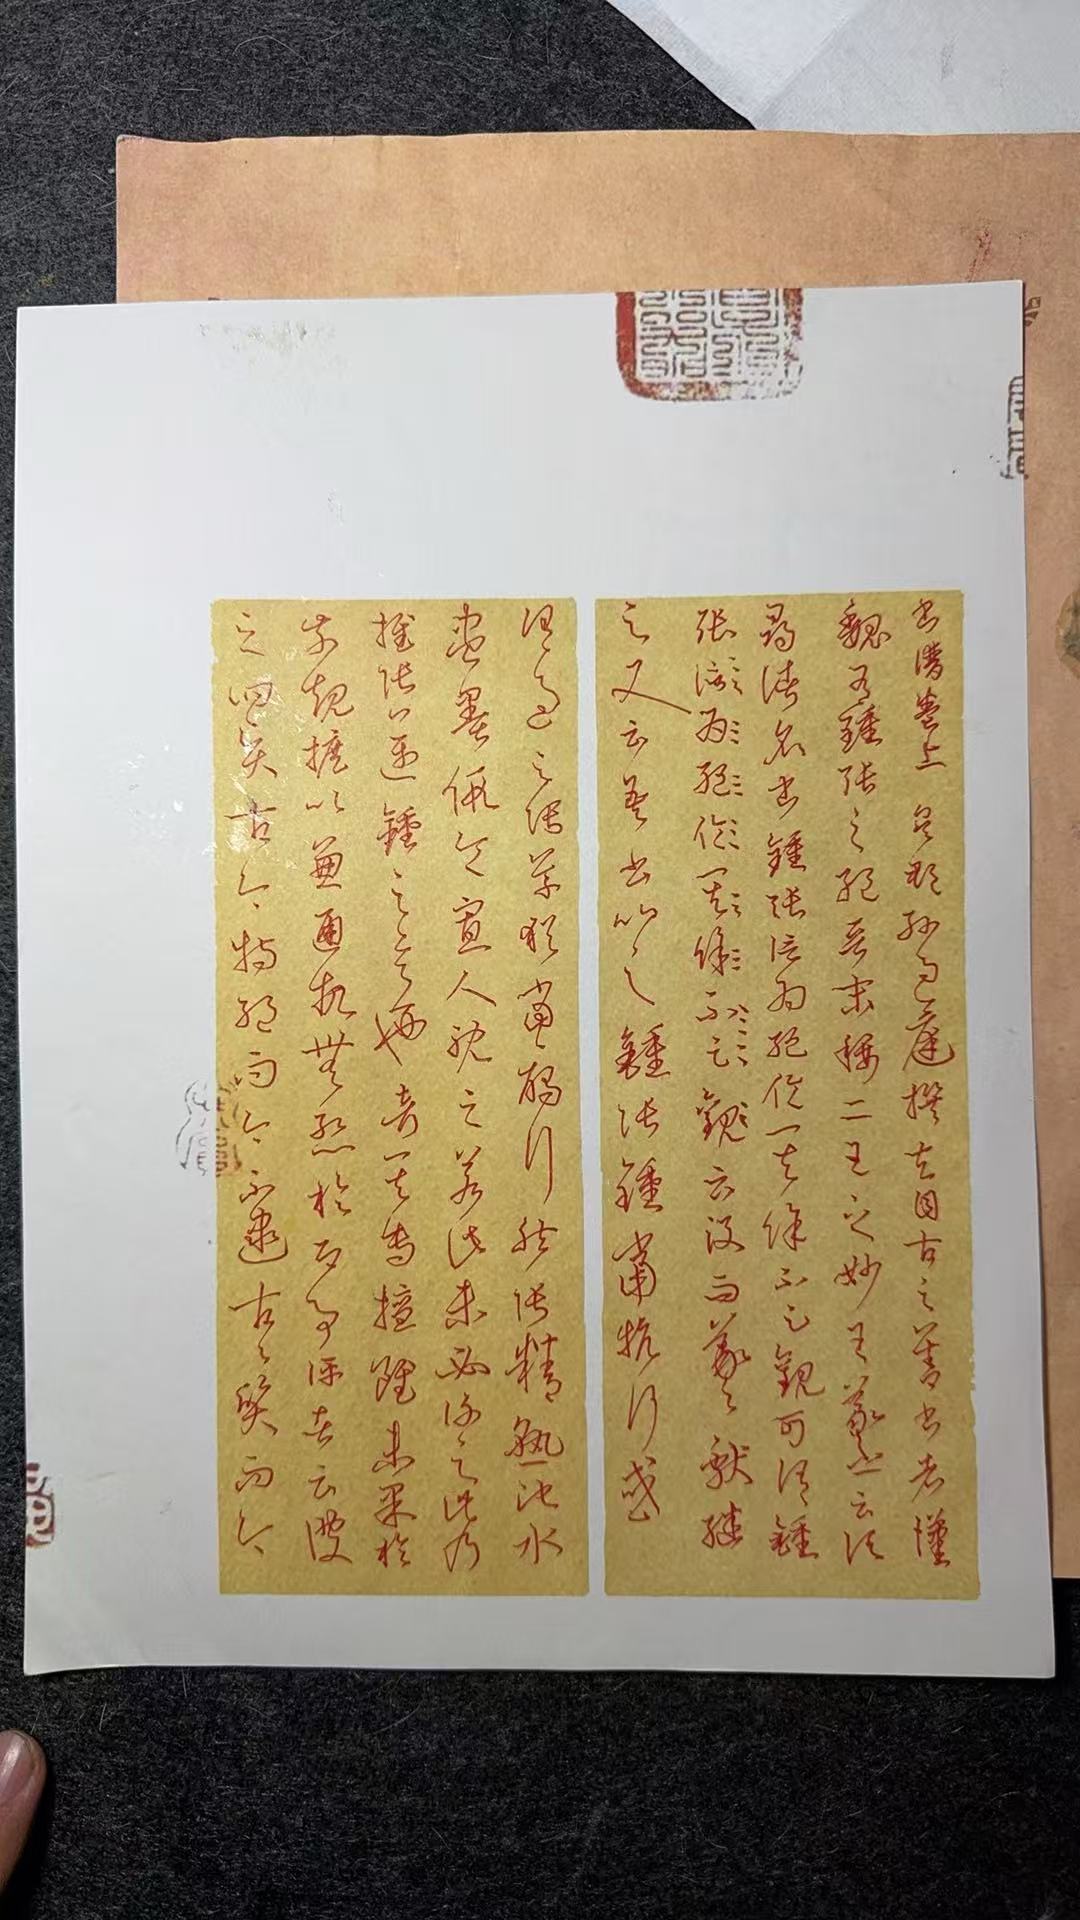 書譜卷上 吳郡孫過庭撰 夫自古之善書者漢
魏有鍾張之絕晉末稱二王之妙王羲之云頃
尋諸名書鍾張信為絕倫其餘不足觀可謂鍾
張信為絕倫其餘不足觀云沒而羲獻繼
之又云吾書比之鍾張鍾當抗行或
謂過之張草猶當鴈行然張精熟池水
盡墨假令寡人耽之若此未必謝之此乃
推張邁鍾之意也考其專擅雖未果於
前規摭以兼通故無慚於即事評者云彼
之四賢古今特絕而今不逮古古質而今